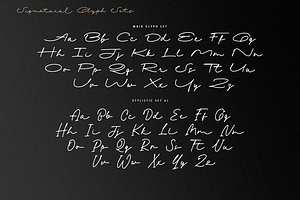 Signatural Glyph Sets
MAIN GLYPH SET
Aa Bb Cc Dd Ee Ff Gg
Hh Ii Jj Kk Ll Mm Nn
Oo Pp Qq Rr Ss Tt Uu
Vv Ww Xx Yy Zz
STYLISTIC SET 01
Aa Bb Cc Dd Ee Ff Gg
Hh Ii Jj Kk Ll Mm Nn
Oo Pp Qq Rr Ss Tt Uu
Vv Ww Xx Yy Zz